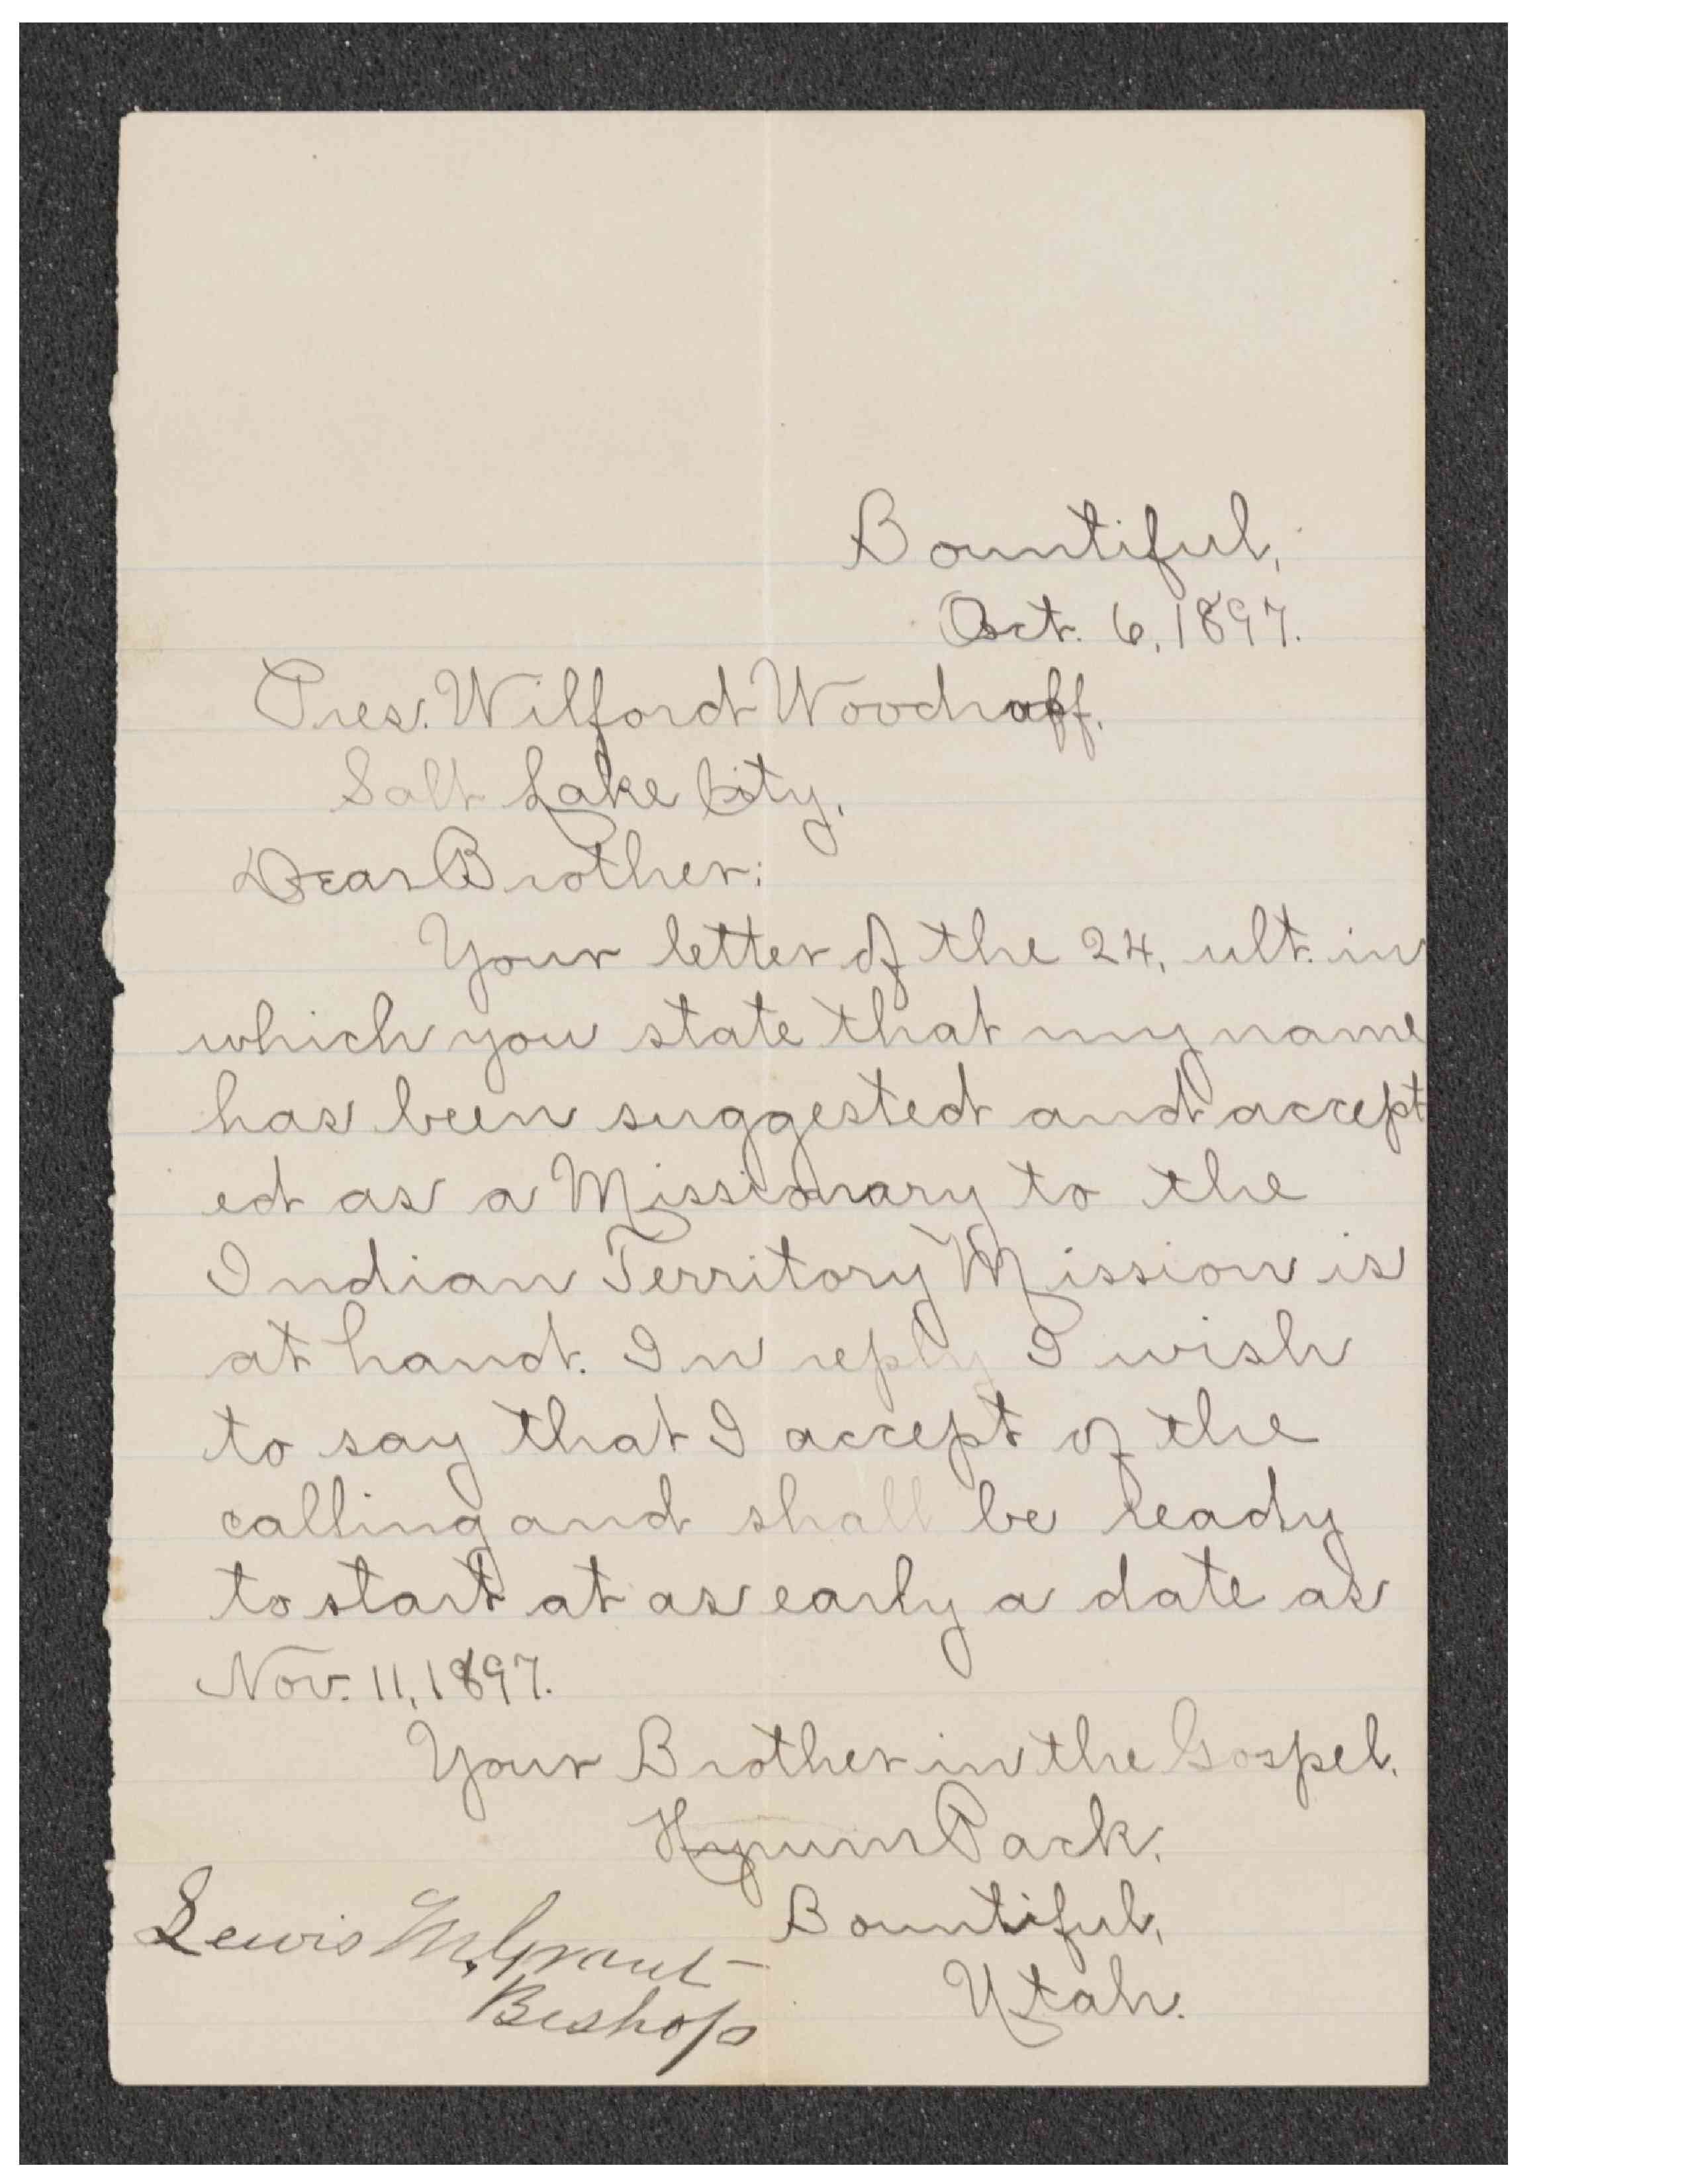 Bountiful,
Oct. 6, 1897.
Pres. Wilford Woodruff.
Salt Lake City.
Dear Brother:
Your letter of the 24, ult. in
which you state that my name
has been suggested and accept
ed as a Missionary to the
Indian Territory Mission is
at hand. In reply I wish
to say that I accept of the
calling and shall be ready
to start at as early a date as
Nov. 11, 1897.
Your Brother in the Gospel.
Hyrum Pack.
Bountiful,
Utah.
Lewis M. Grant
Bishop